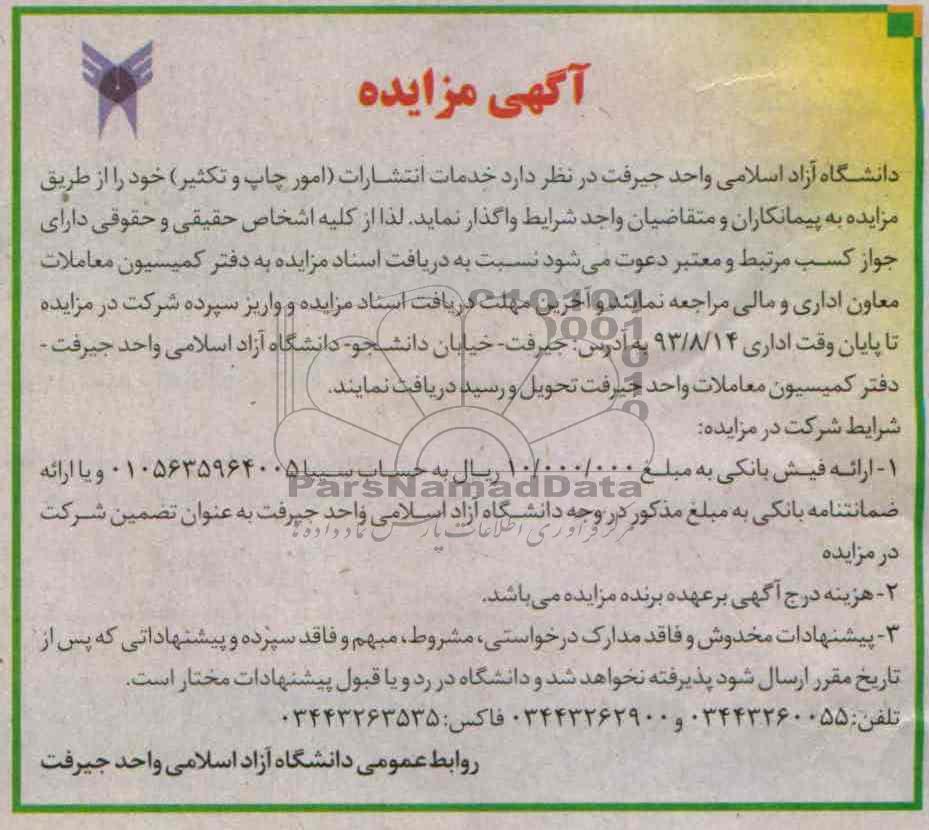 آگهی مزایده
دانشگاه آزاد اسلامی واحد جیرفت در نظر دارد خدمات انتشارات (امور چاپ و تکثیر) خود را از طریق
مزایده به پیمانکاران و متقاضیان واجد شرایط واگذار نماید. لذا از کلیه اشخاص حقیقی و حقوقی دارای
جواز کسب مرتبط و معتبر دعوت می‌شود نسبت به دریافت اسناد مزایده به دفتر کمیسیون معاملات
معاون اداری و مالی مراجعه نمایند و آخرین مهلت دریافت اسناد مزایده و واریز سپرده شرکت در مزایده
تا پایان وقت اداری ۹۳/۸/۱۴ به آدرس: جیرفت- خیابان دانشجو- دانشگاه آزاد اسلامی واحد جیرفت -
دفتر کمیسیون معاملات واحد جیرفت تحویل و رسید دریافت نمایند.
شرایط شرکت در مزایده:
۱- ارائه فیش بانکی به مبلغ ۱۰/۰۰۰/۰۰۰ ریال به حساب سیبا ۰۱۰۵۶۳۵۹۶۴۰۰۵ و یا ارائه
ParsNamadData
ضمانتنامه بانکی به مبلغ مذکور در وجه دانشگاه آزاد اسلامی واحد جیرفت به عنوان تضمین شرکت
مرکز فرآوری اطلاعات پارس نماد داده ها
در مزایده
۲- هزینه درج آگهی بر عهده برنده مزایده می‌باشد.
۳- پیشنهادات مخدوش و فاقد مدارک درخواستی، مشروط، مبهم و فاقد سپرده و پیشنهاداتی که پس از
تاریخ مقرر ارسال شود پذیرفته نخواهد شد و دانشگاه در رد و یا قبول پیشنهادات مختار است.
تلفن: ۰۳۴۴۳۲۶۰۰۵۵ و ۰۳۴۴۳۲۶۲۹۰۰ فاکس: ۰۳۴۴۳۲۶۳۵۳۵
روابط عمومی دانشگاه آزاد اسلامی واحد جیرفت